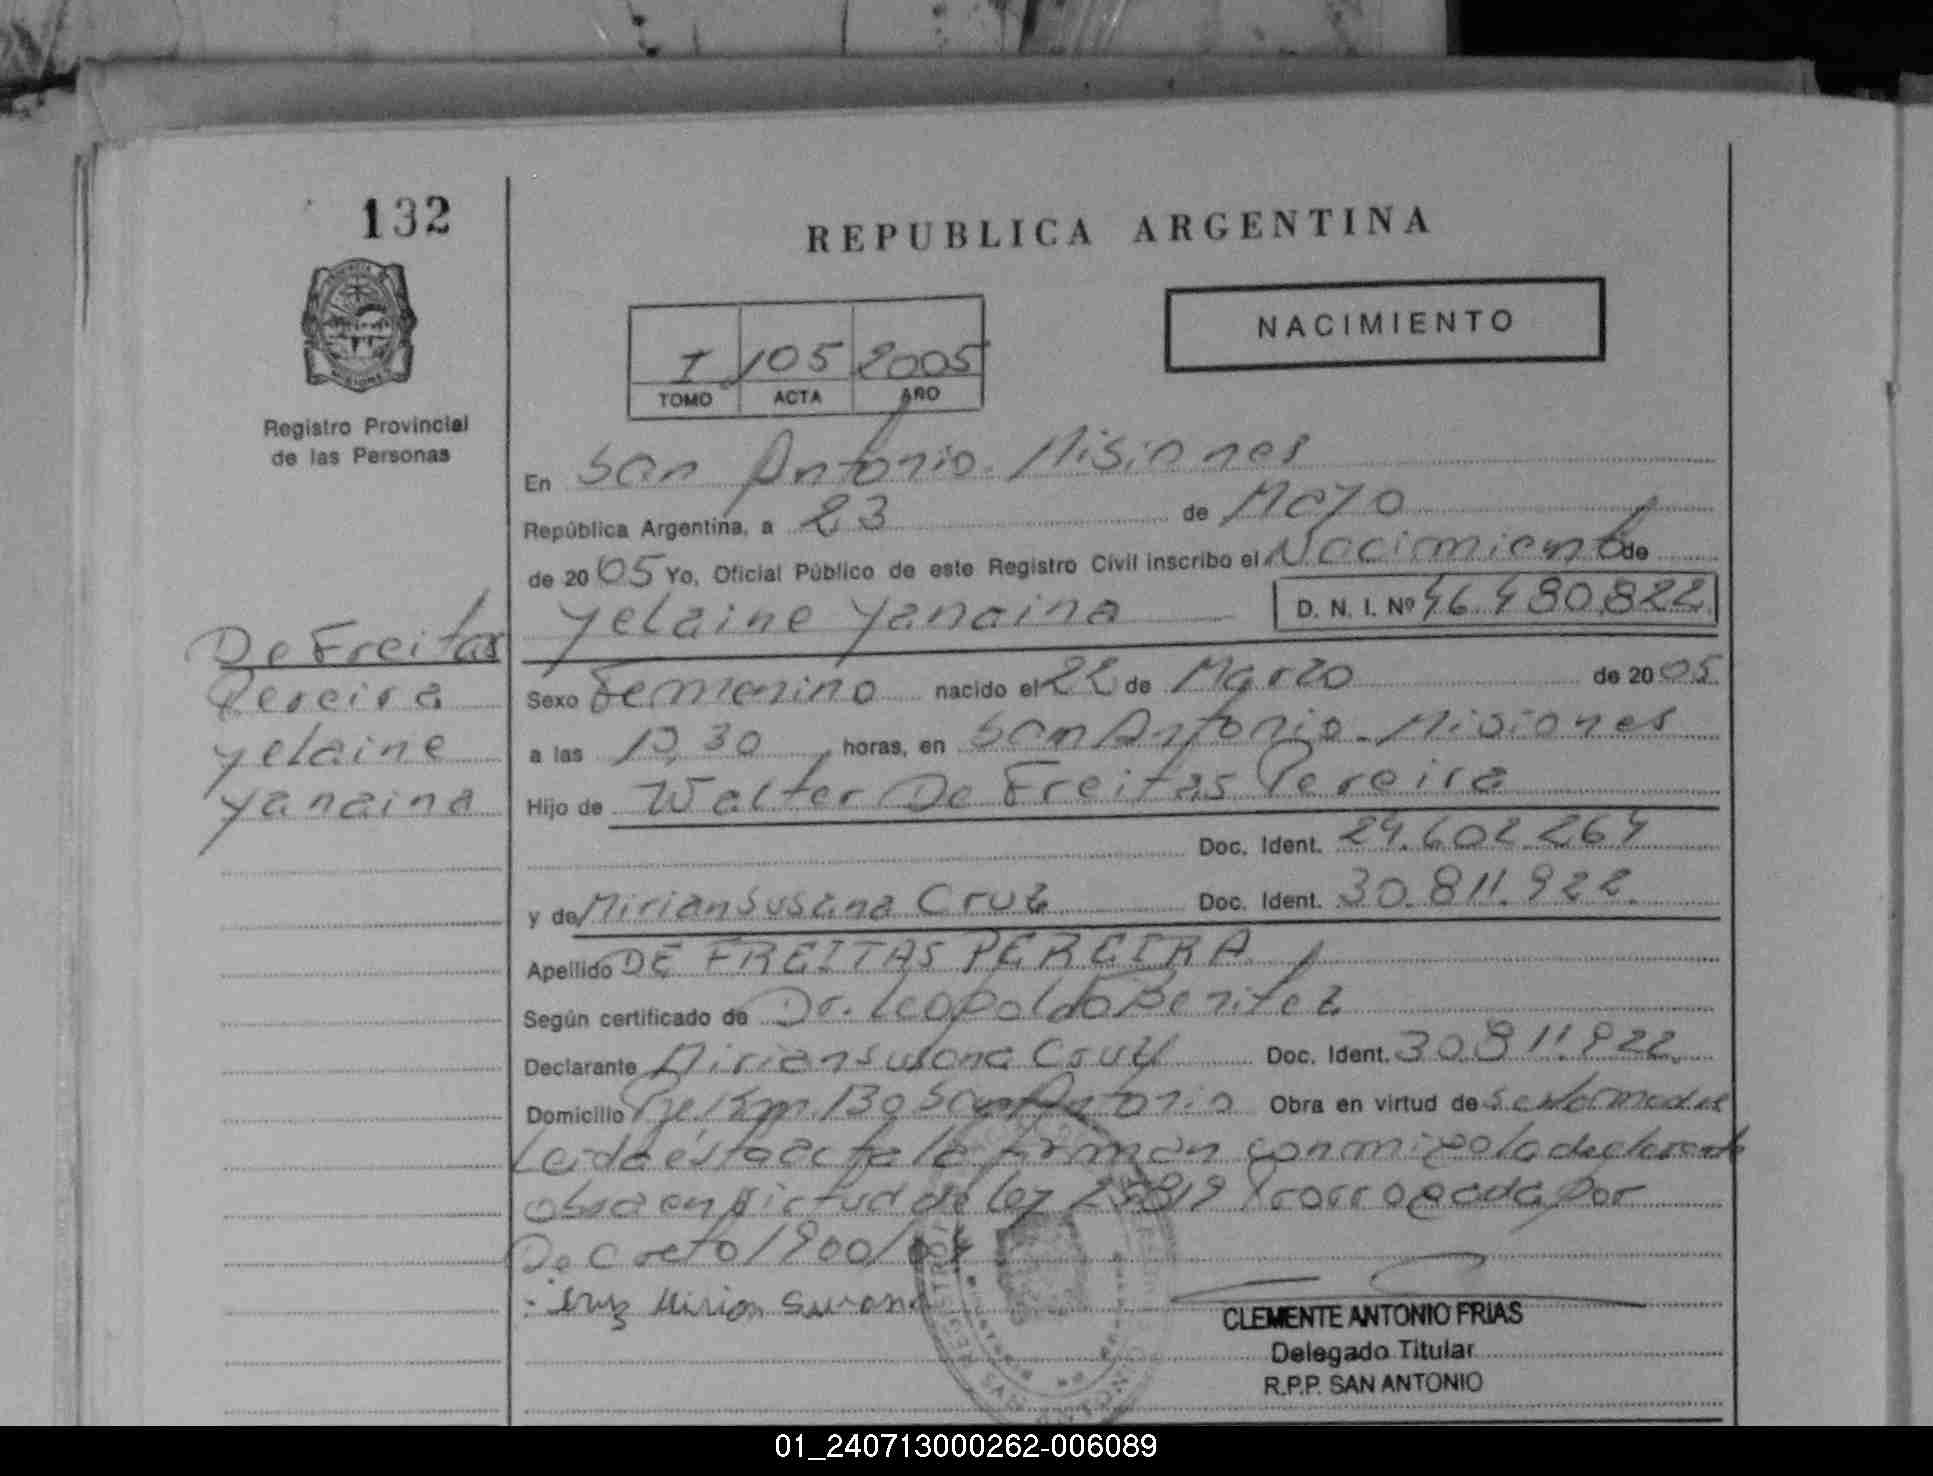 132
REPUBLICA ARGENTINA
NACIMIENTO
I 105 2005
TOMO ACTA AÑO
Registro Provincial
de las Personas
En San Antonio - Misiones
República Argentina, a 23 de Mayo
de 2005 Yo, Oficial Público de este Registro Civil inscribo el Nacimiento de
Yelaine Yanaina D. N. I. Nº 46.480.822
De Freitas
Pereira
Yelaine
Yanaina
Sexo Femenino nacido el 22 de Marzo de 2005
a las 13,30 horas, en San Antonio - Misiones
Hijo de Walter De Freitas Pereira
Doc. Ident. 24.602.264
y de Mirian Susana Cruz Doc. Ident. 30.811.922.
Apellido DE FREITAS PEREIRA
Según certificado de Dr. Leopoldo Benitez
Declarante Mirian Susana Cruz Doc. Ident. 30.811.922.
Domicilio Pje. Km 130 San Antonio Obra en virtud de ser la madre
Leida ésta acta la firman conmigo la declarante
obra en virtud de ley 25819 Prorrogada por
Decreto 1900/04
Cruz Mirian Susana
CLEMENTE ANTONIO FRIAS
Delegado Titular
R.P.P. SAN ANTONIO
01_240713000262-006089